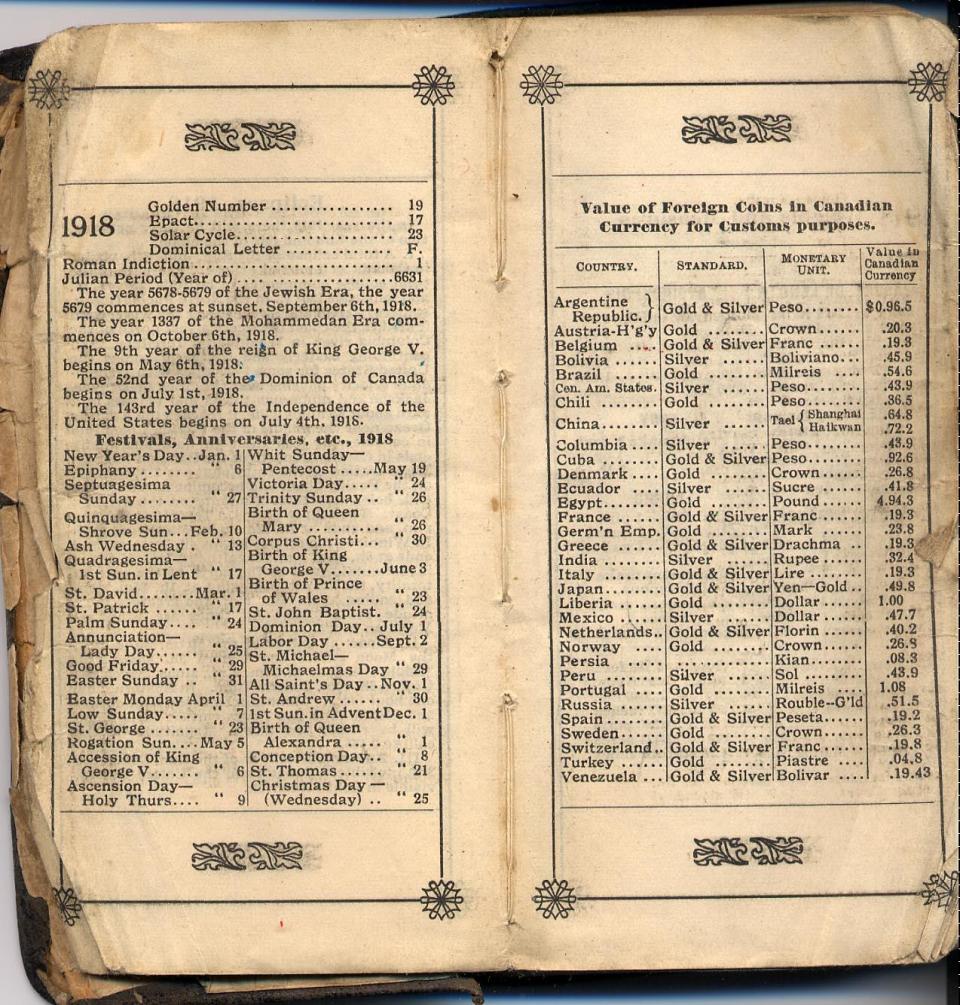 1918
Golden Number ................. 19
Epact........................... 17
Solar Cycle...................... 23
Dominical Letter .............. F.
Roman Indiction........................... 1
Julian Period (Year of) .....................6631
The year 5678-5679 of the Jewish Era, the year
5679 commences at sunset, September 6th, 1918.
The year 1337 of the Mohammedan Era com-
mences on October 6th, 1918.
The 9th year of the reign of King George V.
begins on May 6th, 1918.
The 52nd year of the Dominion of Canada
begins on July 1st, 1918.
The 143rd year of the Independence of the
United States begins on July 4th, 1918.
Festivals, Anniversaries, etc., 1918
New Year's Day..Jan. 1
Epiphany ........ " 6
Septuagesima
Sunday ........ " 27
Quinquagesima—
Shrove Sun...Feb. 10
Ash Wednesday . " 13
Quadragesima—
1st Sun. in Lent " 17
St. David.......Mar. 1
St. Patrick ...... " 17
Palm Sunday.... " 24
Annunciation—
Lady Day..... " 25
Good Friday..... " 29
Easter Sunday .. " 31
Easter Monday April 1
Low Sunday..... " 7
St. George ...... " 23
Rogation Sun....May 5
Accession of King
George V....... " 6
Ascension Day—
Holy Thurs.... " 9
Whit Sunday—
Pentecost .....May 19
Victoria Day..... " 24
Trinity Sunday .. " 26
Birth of Queen
Mary .......... " 26
Corpus Christi... " 30
Birth of King
George V......June 3
Birth of Prince
of Wales ..... " 23
St. John Baptist. " 24
Dominion Day..July 1
Labor Day .....Sept. 2
St. Michael—
Michaelmas Day " 29
All Saint's Day..Nov. 1
St. Andrew ...... " 30
1st Sun. in Advent Dec. 1
Birth of Queen
Alexandra ..... " 1
Conception Day.. " 8
St. Thomas ...... " 21
Christmas Day —
(Wednesday) .. " 25
Value of Foreign Coins in Canadian
Currency for Customs purposes.
COUNTRY. STANDARD. MONETARY UNIT. Value in Canadian Currency
Argentine Republic. } Gold & Silver Peso..... $0.96.5
Austria-H'g'y Gold ........ Crown...... .20.3
Belgium .... Gold & Silver Franc ...... .19.3
Bolivia ...... Silver ...... Boliviano... .45.9
Brazil ....... Gold ........ Milreis .... .54.6
Cen. Am. States. Silver ...... Peso....... .43.9
Chili ........ Gold ........ Peso....... .36.5
China........ Silver ...... Tael { Shanghai .64.8
Haikwan .72.2
Columbia .... Silver ...... Peso....... .43.9
Cuba ........ Gold & Silver Peso....... .92.6
Denmark .... Gold ........ Crown...... .26.8
Ecuador .... Silver ...... Sucre ...... .41.8
Egypt........ Gold ........ Pound ...... 4.94.3
France ...... Gold & Silver Franc ...... .19.3
Germ'n Emp. Gold ........ Mark ...... .23.8
Greece ...... Gold & Silver Drachma .. .19.3
India ........ Silver ...... Rupee...... .32.4
Italy ........ Gold & Silver Lire ....... .19.3
Japan........ Gold & Silver Yen—Gold .. .49.8
Liberia ...... Gold ........ Dollar ..... 1.00
Mexico ...... Silver ...... Dollar ..... .47.7
Netherlands.. Gold & Silver Florin ..... .40.2
Norway .... Gold ........ Crown...... .26.8
Persia ...... ............. Kian....... .08.3
Peru ........ Silver ...... Sol ........ .43.9
Portugal .... Gold ........ Milreis .... 1.08
Russia ...... Silver ...... Rouble--G'ld .51.5
Spain........ Gold & Silver Peseta...... .19.2
Sweden...... Gold ........ Crown...... .26.3
Switzerland.. Gold & Silver Franc ...... .19.8
Turkey ...... Gold ........ Piastre .... .04.8
Venezuela ... Gold & Silver Bolivar .... .19.43